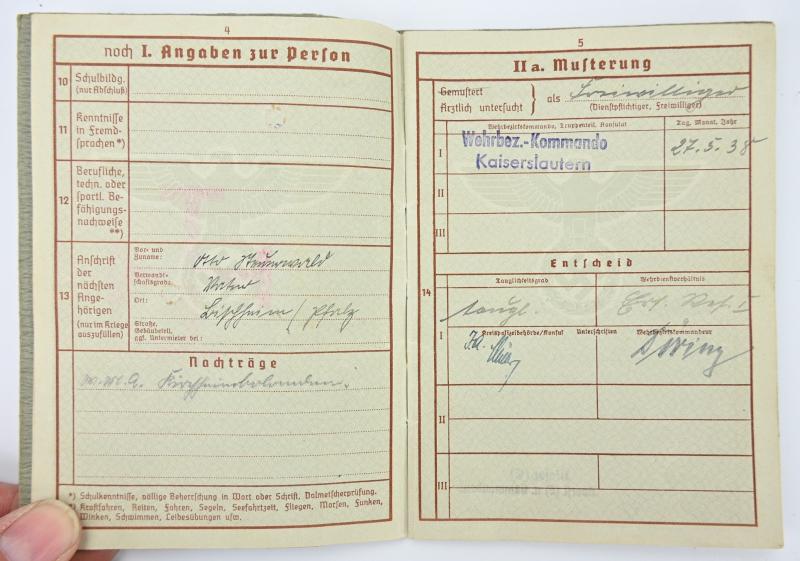 4
noch I. Angaben zur Person
10 Schulbildg.
(nur Abschluß)
11 Kenntnisse
in Fremd-
sprachen*)
12 Berufliche,
techn. oder
sportl. Be-
fähigungs-
nachweise
**)
13 Anschrift
der
nächsten
Ange-
hörigen
(nur im Kriege
auszufüllen)
Vor- und
Zuname: Otto
Verwandt-
schaftsgrad: Vater
Ort: Bischheim / Pfalz
Straße,
Gebäudeteil,
ggf. Untermieter bei:
Nachträge
W.M.A. Kirchheimbolanden.
*) Schulkenntnisse, völlige Beherrschung in Wort oder Schrift, Dolmetscherprüfung.
**) Kraftfahren, Reiten, Fahren, Segeln, Seefahrtzeit, Fliegen, Morsen, Funken,
Winken, Schwimmen, Leibesübungen usw.
5
II a. Musterung
Gemustert
Ärztlich untersucht } als Freiwilliger
(Dienstpflichtiger, Freiwilliger)
Wehrbezirkskommando, Truppenteil, Konsulat Tag, Monat, Jahr
I Wehrbez.-Kommando
Kaiserslautern 27.5.38
II
III
Entscheid
14
Tauglichkeitsgrad Wehrdienstverhältnis
taugl. Ers. Res. I
I Kreispolizeibehörde/Konsul Unterschriften Wehrbezirkskommandeur
II
III